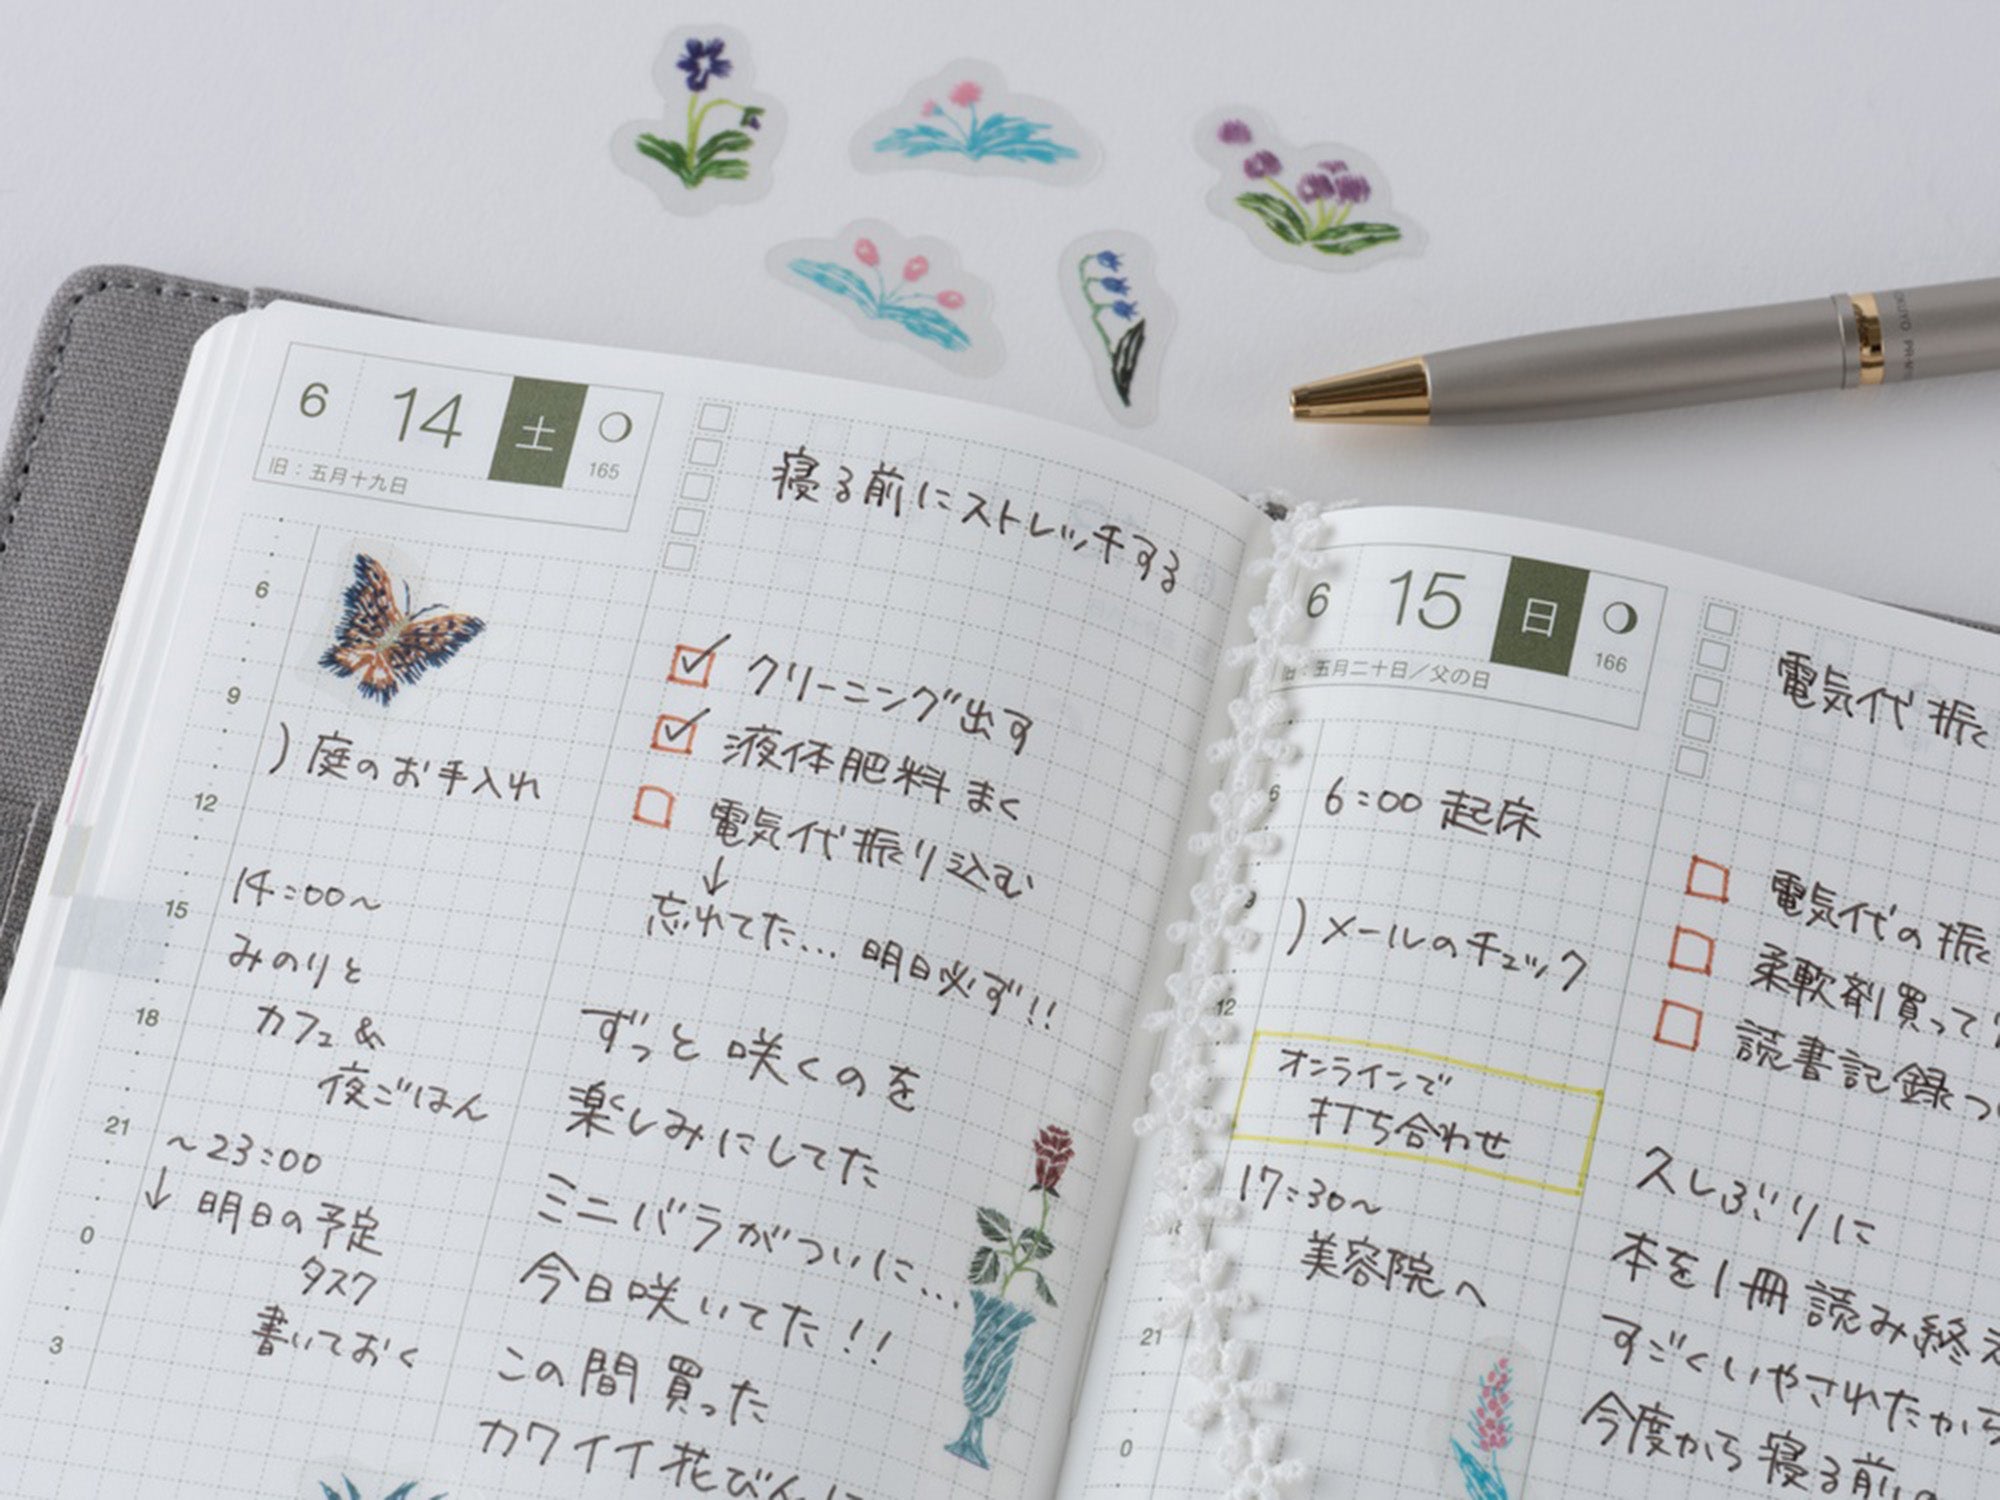 6 14 土
165
旧：五月十九日
寝る前にストレッチする
6
9
12
15
18
21
0
3
）庭のお手入れ
14:00〜
みのりと
カフェ&
夜ごはん
〜23:00
↓ 明日の予定
タスク
書いておく
クリーニング出す
液体肥料まく
電気代振り込む
↓
忘れてた… 明日必ず!!
ずっと咲くのを
楽しみにしてた
ミニバラがついに…
今日咲いてた!!
この間買った
カワイイ花びん
6 15 日
166
旧：五月二十日／父の日
電気代振
6
9
12
18
21
0
6:00 起床
）メールのチェック
オンラインで
打ち合わせ
17:30〜
美容院へ
電気代の振
柔軟剤買って
読書記録つ
久しぶりに
本を1冊読み終え
すごくいやされたから
今度から寝る前
KOKUYO